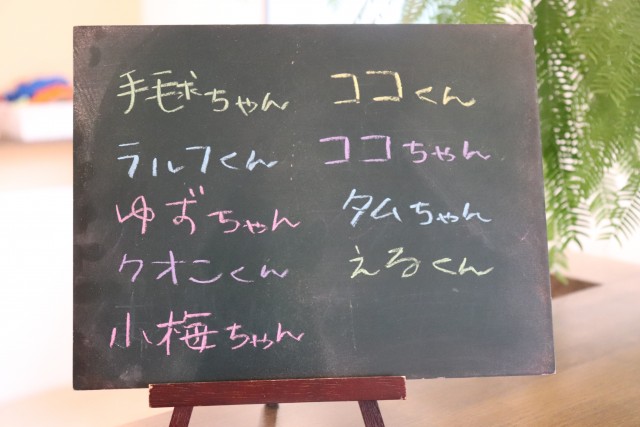 手毬ちゃん
ラルフくん
ゆずちゃん
クオンくん
小梅ちゃん
ココくん
ココちゃん
タムちゃん
えるくん